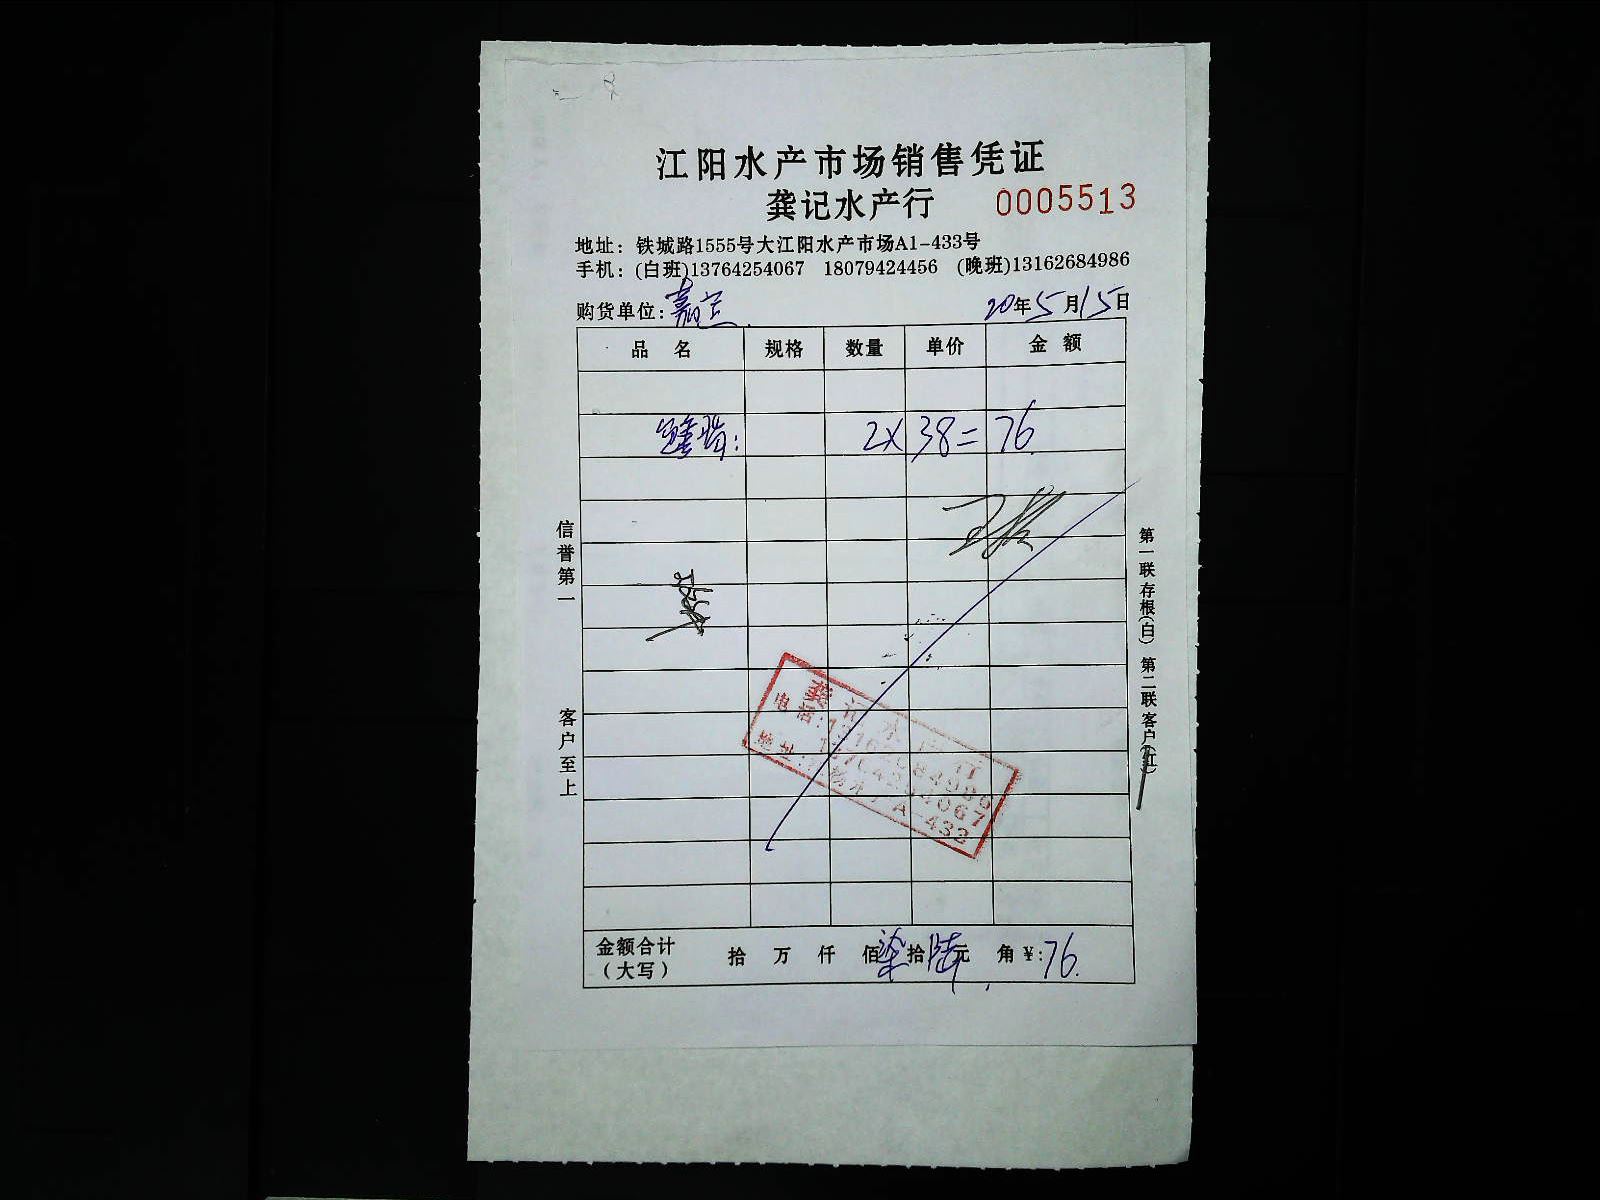 江阳水产市场销售凭证
龚记水产行 0005513
地址：铁城路1555号大江阳水产市场A1-433号
手机：(白班)13764254067 18079424456 (晚班)13162684986
购货单位：嘉定 20年5月15日
品名 规格 数量 单价 金额
2X 38= 76
信誉第一
客户至上
第一联存根(白) 第二联客户(红)
龚记水产行
电话：13162684986
13764254067
地址：江杨水产A-432
金额合计 拾 万 仟 佰 柒拾陆元 角 ¥：76
（大写）